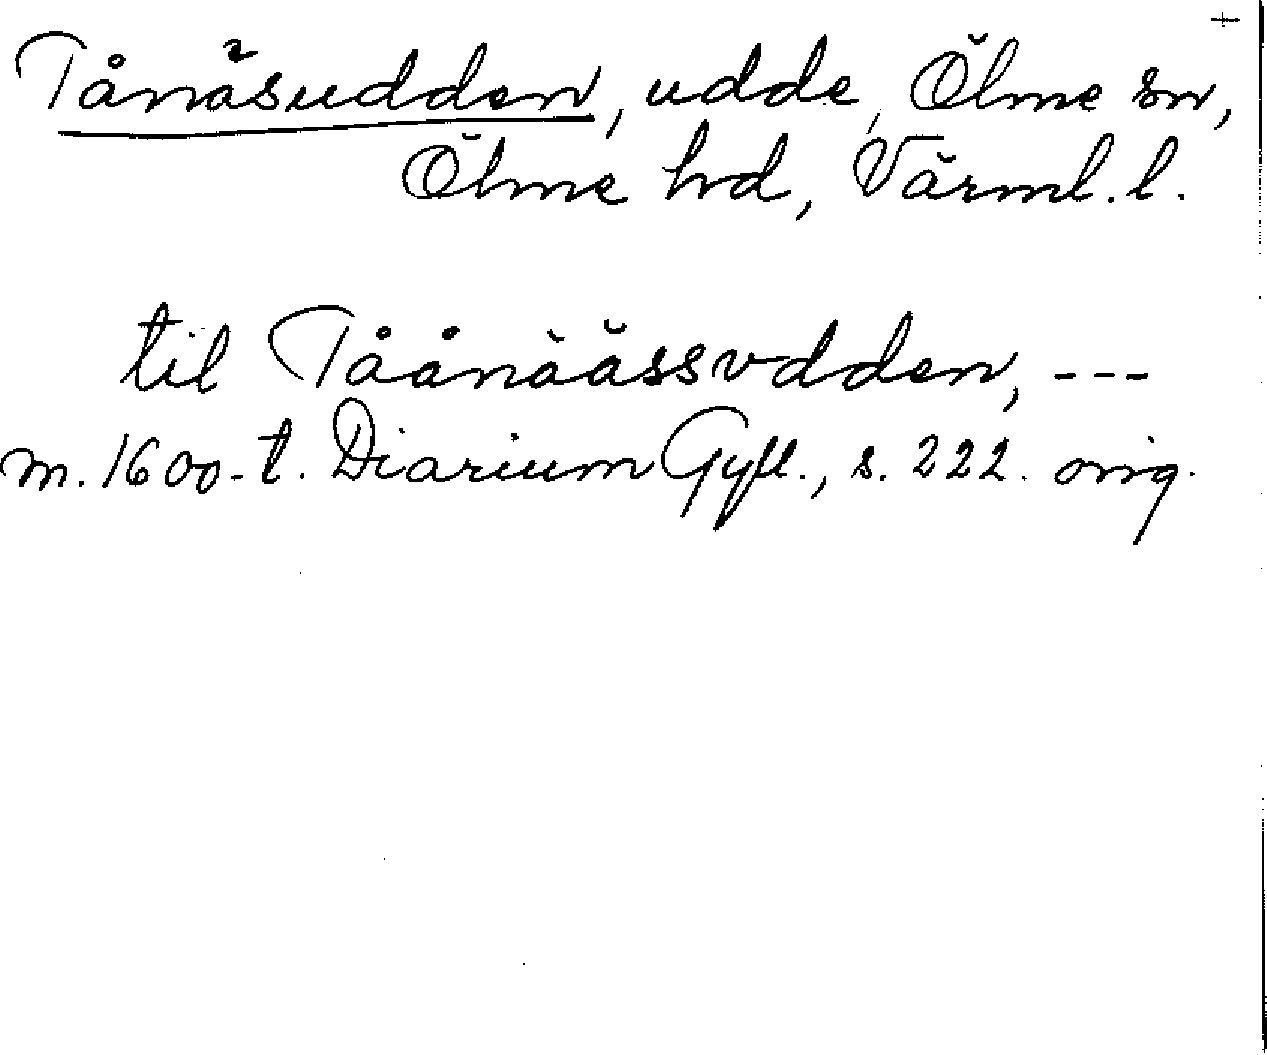 +
Tånäsudden, udde, Ölme sn,
Ölme hd, Värml. l.
til Tåånäässvdden, ---
m. 1600-t. Diarium Gyll., s. 222. orig.